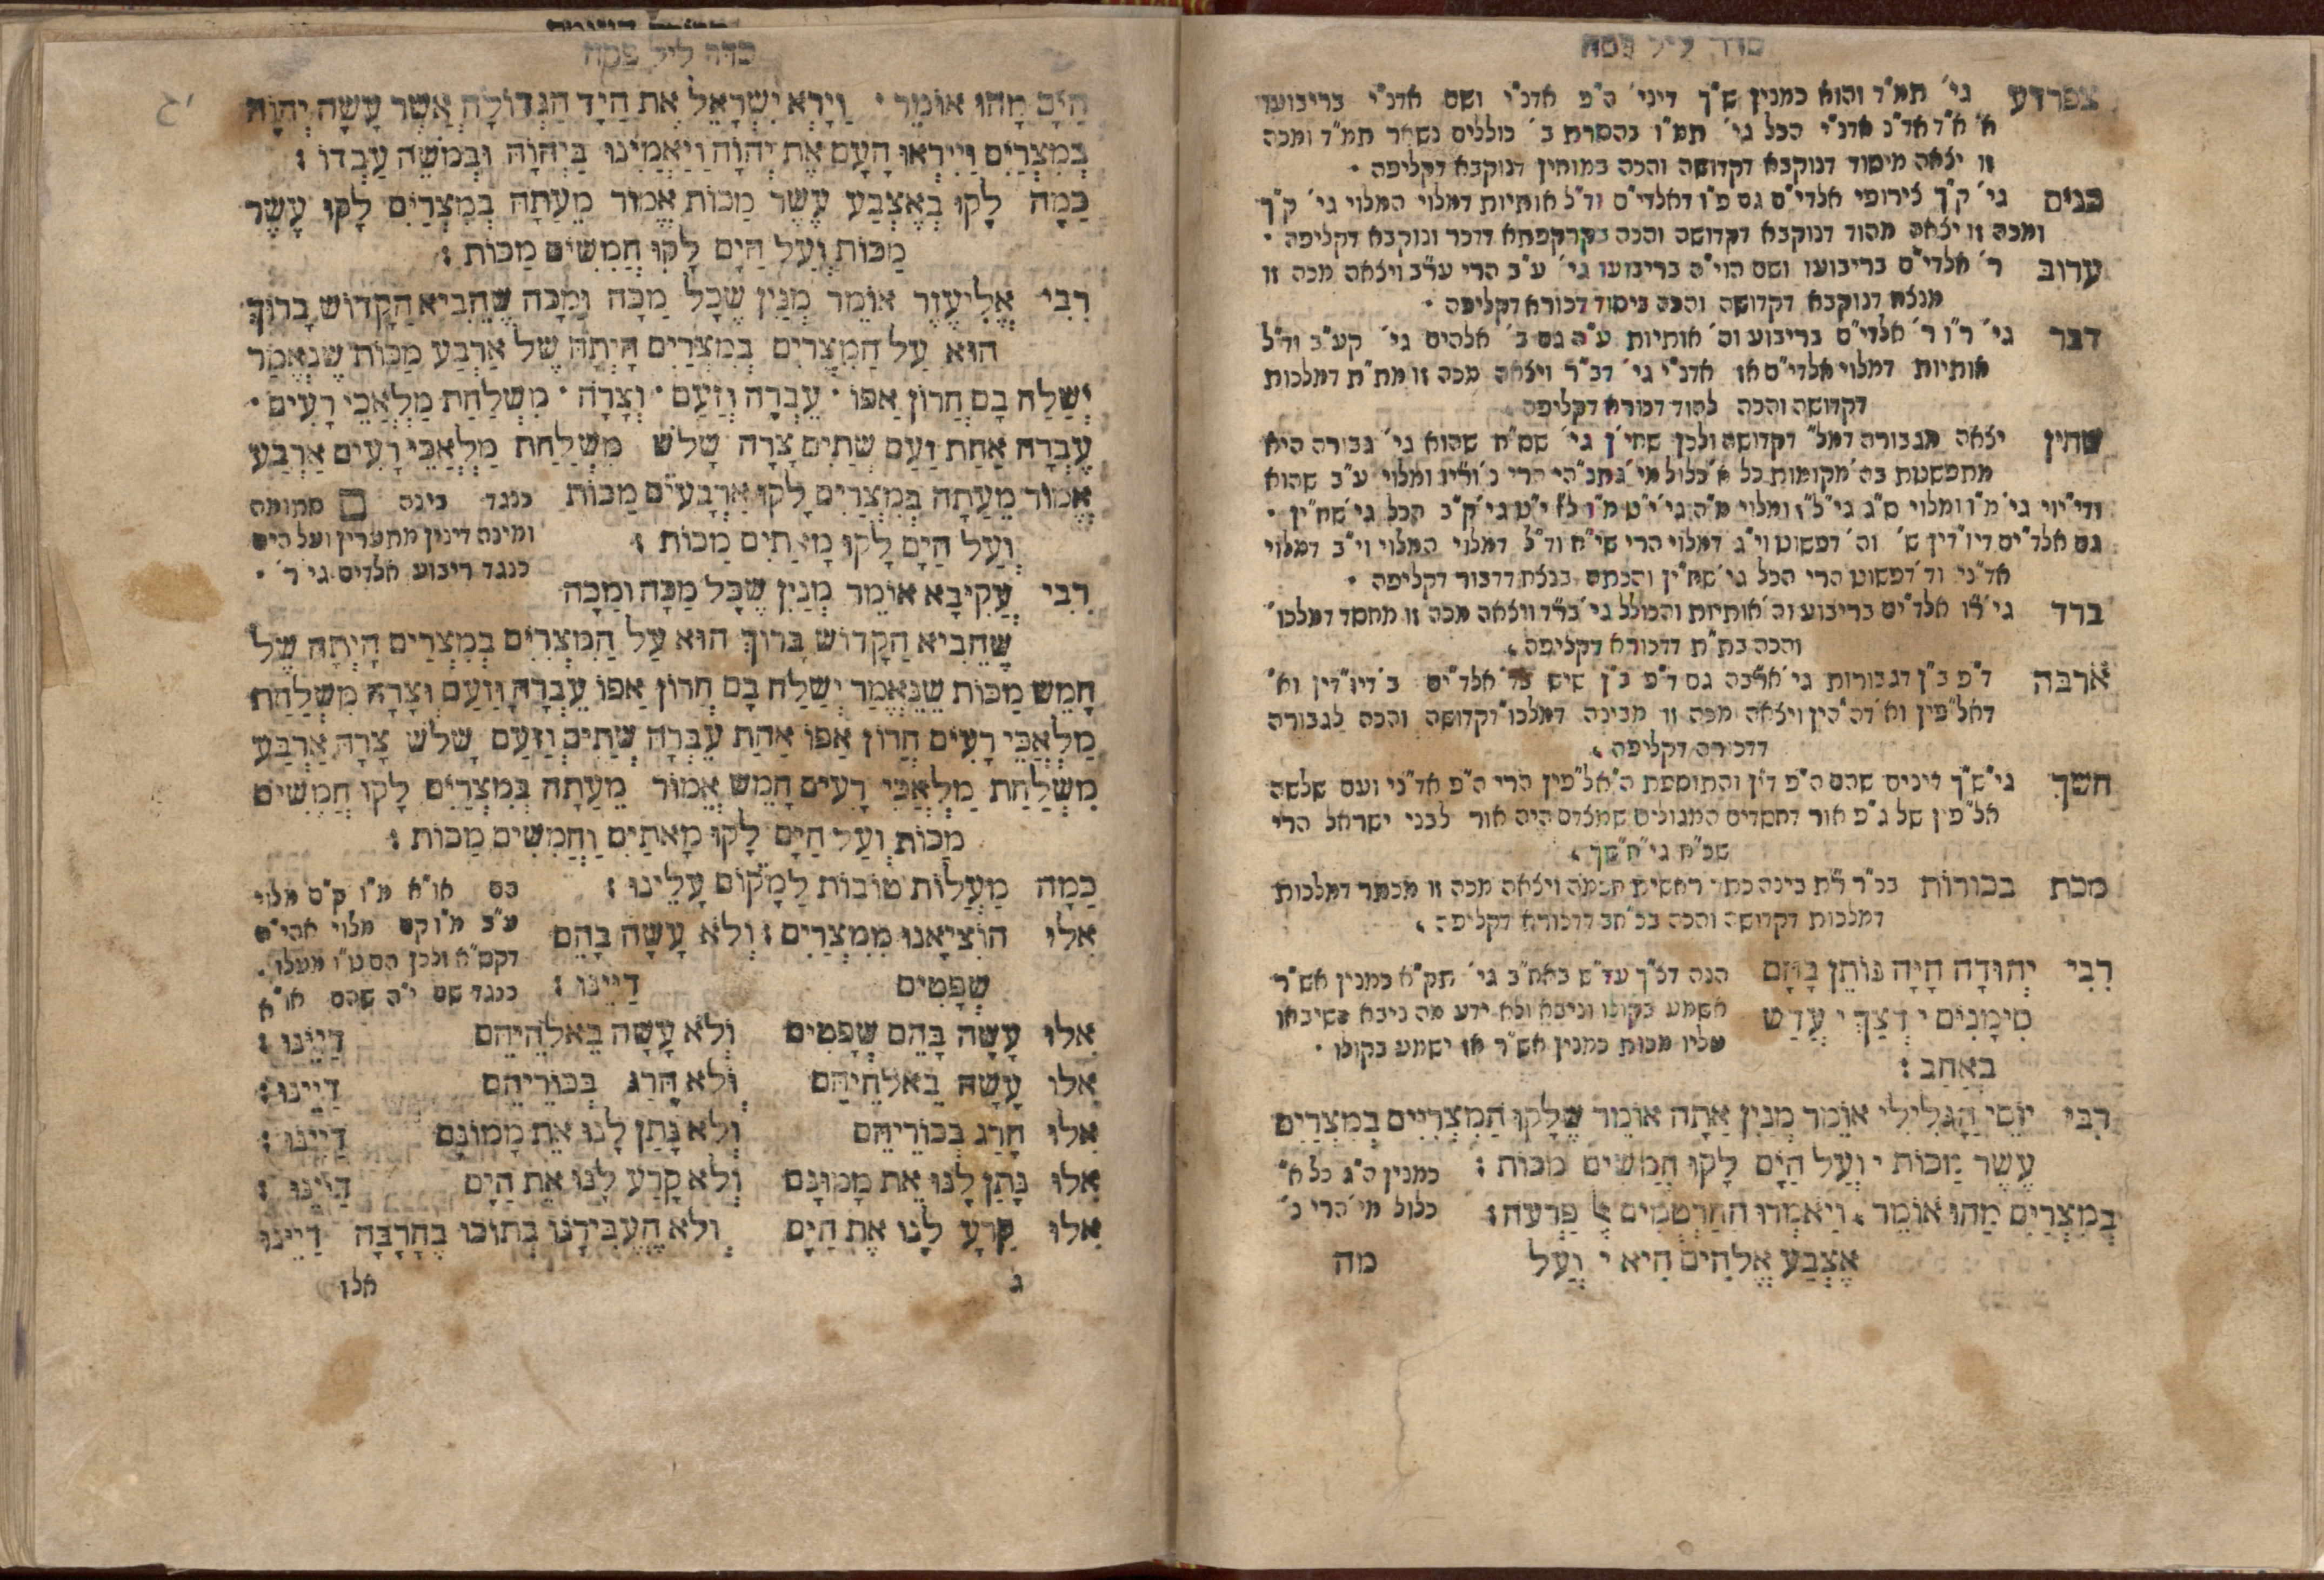 סדר ליל פסח
צפרדע גי׳ תמ״ד והוא כמנין ש״ך דיני׳ ה״פ אדנ״י ושם אדנ״י בריבועו
א׳ א״ד אד״נ אדנ״י הכל גי׳ תמ״ו בהסרת ב׳ כוללים נשאר תמ״ד ומכה
זו יצאה מיסוד דנוקבא דקדושה והכה במוחין דנוקבא דקליפה ·
כנים גי׳ ק״ך צירופי אלדי״ם גם פ״ו דאלדי״ם וד״ל אותיות דמלוי המלוי גי׳ ק״ך
ומכה זו יצאה מהוד דנוקבא דקדושה והכה בקרקפתא דדכר ונוקבא דקליפה ·
ערוב ר׳ אלדי״ם בריבועו ושם הוי״ה בריבועו גי׳ ע״ב הרי ער״ב ויצאה מכה זו
מנצח דנוקבא דקדושה והכה ביסוד דכורא דקליפה ·
דבר גי׳ ר״ו ר׳ אלדי״ם בריבוע וה׳ אותיות ע״ה גם ב׳ אלהים גי׳ קע״ב וד״ל
אותיות דמלוי אלדי״ם או אדנ״י גי׳ דב״ר ויצאה מכה זו מת״ת דמלכות
דקדושה והכה להוד דכורא דקליפה
שחין יצאה מגבורה דמל״ דקדושה ולכן שחי״ן גי׳ שס״ח שהוא גי׳ גבורה היא
מתפשטת בה׳ מקומות כל א׳ כלול מי׳
ודי״יוי גי׳ מ״ו ומלוי ס״ג גי׳ ל״ז ומלוי מ״ה גי׳ י״ט
גם אלד״ים דיו״דין ש׳ וה׳ דפשוט וי״ג דמלוי הרי שי״ח וד״ל דמלוי המלוי וי״ב דמלוי
אד״ני וד׳ דפשוט הרי הכל גי׳ שח״ין והכתה בנצח דדכור דקליפה ·
ברד גי׳ ר״ו אלד״ים בריבוע וה׳ אותיות והכולל גי׳ בר״ד ויצאה מכה זו מחסד דמלכו׳
והכה בת״ת דדכורא דקליפה
ארבה ד״פ ב״ן דגבורות גי׳ ארבה גם ד״פ ב״ן שיש בד׳ אלד״ים ב׳ דיו״דין וא׳
דאל״פין וא׳ דה״הין ויצאה מכה זו מבינה דמלכו׳ דקדושה והכה לגבורה
דדכורא דקליפה
חשך גי׳ ש״ך דינים שהם ה״פ דין והתוספת ה״אל״פין הרי ה״פ אד״ני ועם שלשה
אל״פין של ג״פ אור דחסדים המגולים שמצדם היה אור לבני ישראל הרי
שכ״ח גי׳ ח״שך
מכת בכורות בכ״ר ר״ת בינה כתר ראשית חכמה ויצאה מכה זו מכתר דמלכות
דמלכות דקדושה והכה בכ״חב דדכורא דקליפה
רִבִּי יְהוּדָה הָיָה נוֹתֵן בָּהֶם הנה דצ״ך עד״ש באח״ב גי׳ תק״א כמנין אש״ר
סִימָנִים י דְצַךְ י עֲדַשׁ אשמע בקולו
עליו מכות כמנין אש״ר או ישמע בקולו ·
בְּאַחַב :
רִבִּי יוֹסֵי הַגְּלִילִי אוֹמֵר מְנַיִן אַתָּה אוֹמֵר שֶׁלָּקוּ הַמִּצְרִיִּים בְּמִצְרַיִם
עֶשֶׂר מַכּוֹת י וְעַל הַיָּם לָקוּ חֲמִשִּׁים מַכּוֹת : כמנין ה״ג כל א׳
בְּמִצְרַיִם מַהוּ אוֹמֵר וַיֹּאמְרוּ הַחַרְטֻמִּים אֶל פַּרְעֹה : כלול מי׳ הרי נ׳
אֶצְבַּע אֱלֹהִים הִיא י וְעַל מה
סדר ליל פסח
הַיָּם מָהוּ אוֹמֵר י וַיַּרְא יִשְׂרָאֵל אֶת הַיָּד הַגְּדוֹלָה אֲשֶׁר עָשָׂה יְהֹוָה
בְּמִצְרַיִם וַיִּירְאוּ הָעָם אֶת יְהוָה וַיַּאֲמִינוּ בַּיהוָֹה וּבְמֹשֶׁה עַבְדּוֹ :
כַּמָּה לָקוּ בְאֶצְבַּע עֶשֶׂר מַכּוֹת אֱמוֹר מֵעַתָּה בְּמִצְרַיִם לָקוּ עֶשֶׂר
מַכּוֹת וְעַל הַיָּם לָקוּ חֲמִשִּׁים מַכּוֹת :
רִבִּי אֱלִיעֶזֶר אוֹמֵר מְנַיִן שֶׁכָּל מַכָּה וּמַכָּה שֶׁהֵבִיא הַקָּדוֹשׁ בָּרוּךְ
הוּא עַל הַמִּצְרִים בְּמִצְרַיִם הָיְתָה שֶׁל אַרְבַּע מַכּוֹת שֶׁנֶּאֱמַר
יְשַׁלַּח בָּם חֲרוֹן אַפּוֹ · עֶבְרָה וָזַעַם · וְצָרָה · מִשְׁלַחַת מַלְאֲכֵי רָעִים ·
עֶבְרָה אַחַת זַעַם שְׁתַּיִם צָרָה שָׁלֹשׁ מִשְׁלַחַת מַלְאֲכֵי רָעִים אַרְבַּע
אֱמוֹר מֵעַתָּה בְּמִצְרַיִם לָקוּ אַרְבָּעִים מַכּוֹת כנגד בינה ם סתומה
וְעַל הַיָּם לָקוּ מָאתַיִם מַכּוֹת : ומינה דינין מתערין ועל הים
כנגד ריבוע אלדים גי׳ ר׳ ·
רִבִּי עֲקִיבָא אוֹמֵר מְנַיִן שֶׁכָּל מַכָּה וּמַכָּה
שֶׁהֵבִיא הַקָּדוֹשׁ בָּרוּךְ הוּא עַל הַמִּצְרִים בְּמִצְרַיִם הָיְתָה שֶׁל
חָמֵשׁ מַכּוֹת שֶׁנֶּאֱמַר יְשַׁלַּח בָּם חֲרוֹן אַפּוֹ עֶבְרָה וָזַעַם וְצָרָה מִשְׁלַחַת
מַלְאֲכֵי רָעִים חֲרוֹן אַפּוֹ אַחַת עֶבְרָה שְׁתַּיִם וָזַעַם שָׁלֹשׁ צָרָה אַרְבַּע
מִשְׁלַחַת מַלְאֲכֵי רָעִים חָמֵשׁ אֱמוֹר מֵעַתָּה בְּמִצְרַיִם לָקוּ חֲמִשִּׁים
מַכּוֹת וְעַל הַיָּם לָקוּ מָאתַיִם וַחֲמִשִּׁים מַכּוֹת :
כַּמָּה מַעֲלוֹת טוֹבוֹת לַמָּקוֹם עָלֵינוּ : הם או״א מ״ו ק״ס מלוי
ע״ב מ״ו קס מלוי אהי״ה
אִלּוּ הוֹצִיאָנוּ מִמִּצְרַיִם : וְלֹא עָשָׂה בָהֶם דקס״א ולכן הם ט״ו מעלו׳
שְׁפָטִים דַּיֵּינוּ : כנגד שם י״ה שהם או״א
אִלּוּ עָשָׂה בָּהֶם שְׁפָטִים וְלֹא עָשָׂה בֵאלֹהֵיהֶם דַּיֵּינוּ :
אִלּוּ עָשָׂה בֵאלֹהֵיהֶם וְלֹא הָרַג בְּכוֹרֵיהֶם דַּיֵּינוּ :
אִלּוּ הָרַג בְּכוֹרֵיהֶם וְלֹא נָתַן לָנוּ אֶת מָמוֹנָם דַּיֵּינוּ :
אִלּוּ נָתַן לָנוּ אֶת מָמוֹנָם וְלֹא קָרַע לָנוּ אֶת הַיָּם דַּיֵּינוּ :
אִלּוּ קָרַע לָנוּ אֶת הַיָּם וְלֹא הֶעֱבִירָנוּ בְתוֹכוֹ בֶחָרָבָה דַּיֵּינוּ
ג אלו